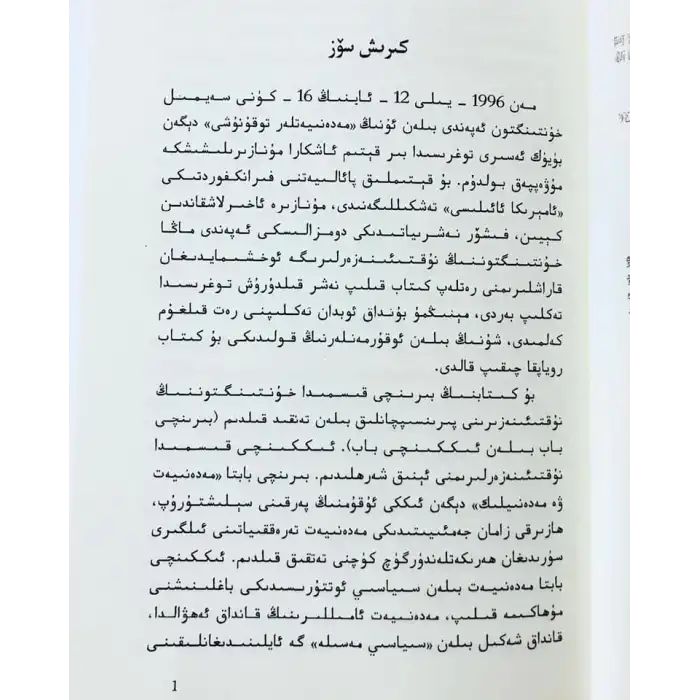 كىرىش سۆز
مەن 1996 - يىلى 12 - ئاينىڭ 16 - كۈنى سەيمىل
خۇنتىنگتون ئەپەندى بىلەن ئۇنىڭ «مەدەنىيەتلەر توقۇنۇشى» دېگەن
بۈيۈك ئەسىرى توغرىسىدا بىر قېتىم ئاشكارا مۇنازىرىلىشىشكە
مۇۋەپپەق بولدۇم. بۇ قېتىملىق پائالىيەتنى فىرانكفورتىكى
«ئامېرىكا ئائىلىسى» تەشكىللىگەنىدى، مۇنازىرە ئاخىرلاشقاندىن
كېيىن، فىشۆر نەشرىياتىدىكى دومزالىسكى ئەپەندى ماڭا
خۇنتىنگتوننىڭ نۇقتىئىنەزەرلىرىگە ئوخشىمايدىغان
قاراشلىرىمنى رەتلەپ كىتاب قىلىپ نەشر قىلدۇرۇش توغرىسىدا
تەكلىپ بەردى، مېنىڭمۇ بۇنداق ئوبدان تەكلىپنى رەت قىلغۇم
كەلمىدى، شۇنىڭ بىلەن ئوقۇرمەنلەرنىڭ قولىدىكى بۇ كىتاب
روياپقا چىقىپ قالدى.
بۇ كىتابنىڭ بىرىنچى قىسمىدا خۇنتىنگتوننىڭ
نۇقتىئىنەزىرىنى پىرىنسىپچانلىق بىلەن تەنقىد قىلدىم (بىرىنچى
باب بىلەن ئىككىنچى باب). ئىككىنچى قىسمىدا
نۇقتىئىنەزەرلىرىمنى ئېنىق شەرھلىدىم. بىرىنچى بابتا «مەدەنىيەت
ۋە مەدەنىيلىك» دېگەن ئىككى ئۇقۇمنىڭ پەرقىنى سېلىشتۇرۇپ،
ھازىرقى زامان جەمئىيىتىدىكى مەدەنىيەت تەرەققىياتىنى ئىلگىرى
سۈرىدىغان ھەرىكەتلەندۈرگۈچ كۈچنى تەتقىق قىلدىم. ئىككىنچى
بابتا مەدەنىيەت بىلەن سىياسىي ئوتتۇرىسىدىكى باغلىنىشنى
مۇھاكىمە قىلىپ، مەدەنىيەت ئامىللىرىنىڭ قانداق ئەھۋالدا،
قانداق شەكىل بىلەن «سىياسىي مەسىلە» گە ئايلىنىدىغانلىقىنى
1